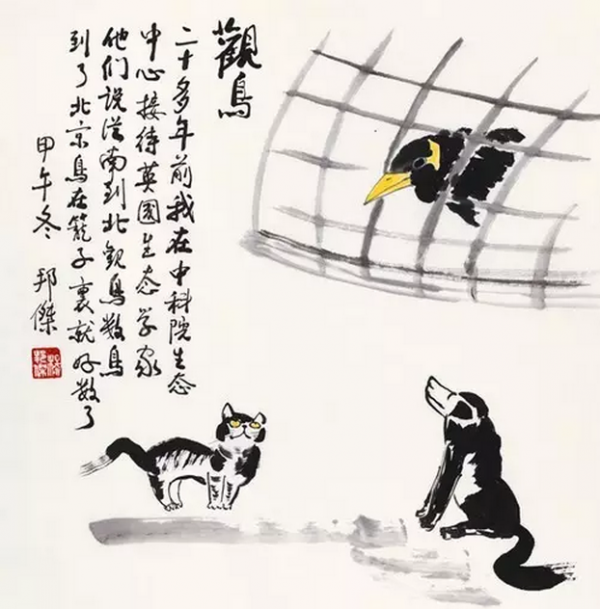 觀鳥
二十多年前我在中科院生态
中心接待英国生态学家
他们说从南到北观鸟数鸟
到了北京鸟在籠子裏就好数了
甲午冬 邦傑